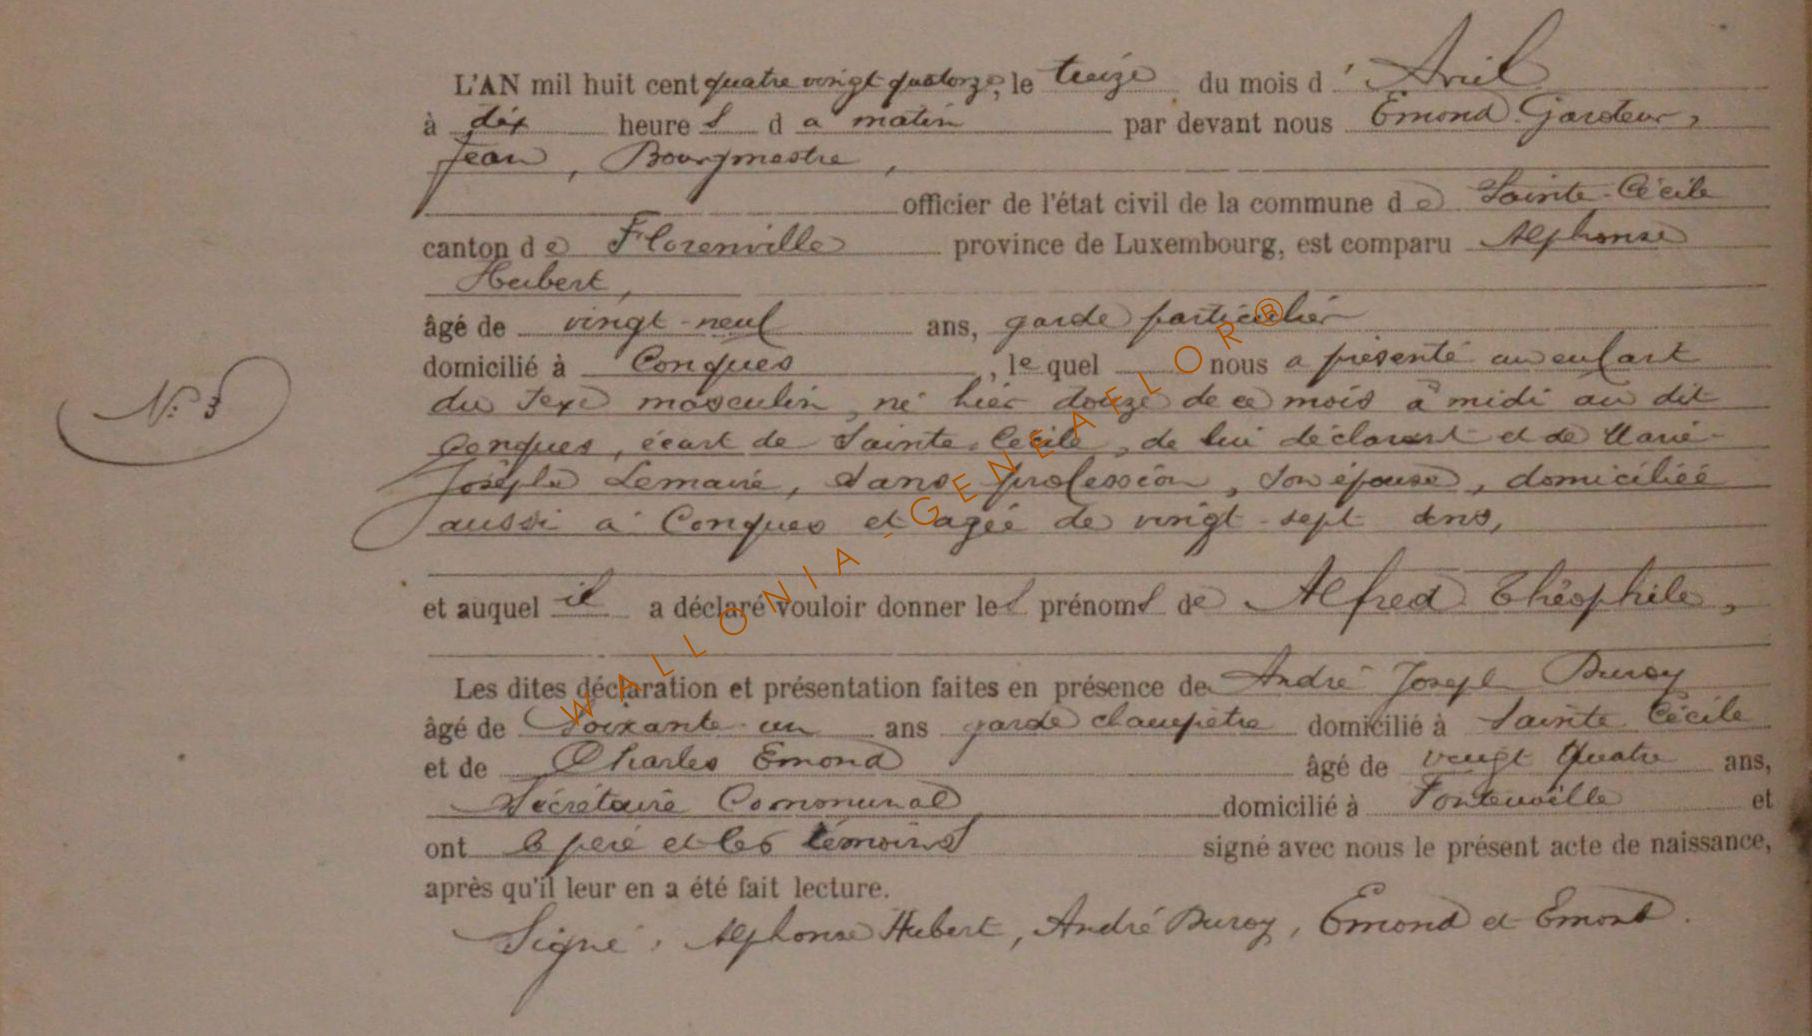 L'AN mil huit cent quatre vingt quatorze, le treize du mois d' Avril
à dix heures d u matin par devant nous Emond Garoteur,
Jean, Bourgmestre,
officier de l'état civil de la commune de Sainte-Cécile
canton de Florenville province de Luxembourg, est comparu Alphonse
Hubert,
âgé de vingt-neuf ans, garde particulier
domicilié à Conques, lequel nous a présenté un enfant
du sexe masculin, né hier douze de ce mois à midi au dit
Conques, écart de Sainte Cécile, de lui déclarant et de Marie-
Josèphe Lemaire, sans profession, son épouse, domiciliée
aussi à Conques et agée de vingt-sept ans,
N° 3
et auquel il a déclaré vouloir donner les prénoms de Alfred Théophile,
Les dites déclaration et présentation faites en présence de André Joseph Duroy
âgé de Soixante un ans garde champêtre domicilié à Sainte Cécile
et de Charles Emond âgé de vingt quatre ans,
Secrétaire Communal domicilié à Fontenoille et
ont le père et les témoins signé avec nous le présent acte de naissance,
après qu'il leur en a été fait lecture.
Signé: Alphonse Hubert, André Duroy, Emond et Emond.
WALLONIA - GENEAFLOR®